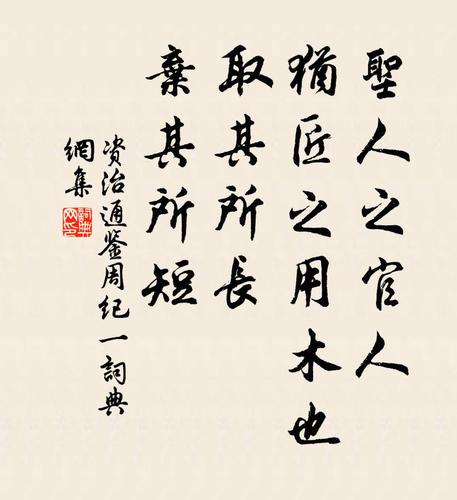 聖人之官人
猶匠之用木也
取其所長
棄其所短
资治通鉴周纪一詞典
網集
詞典
网印